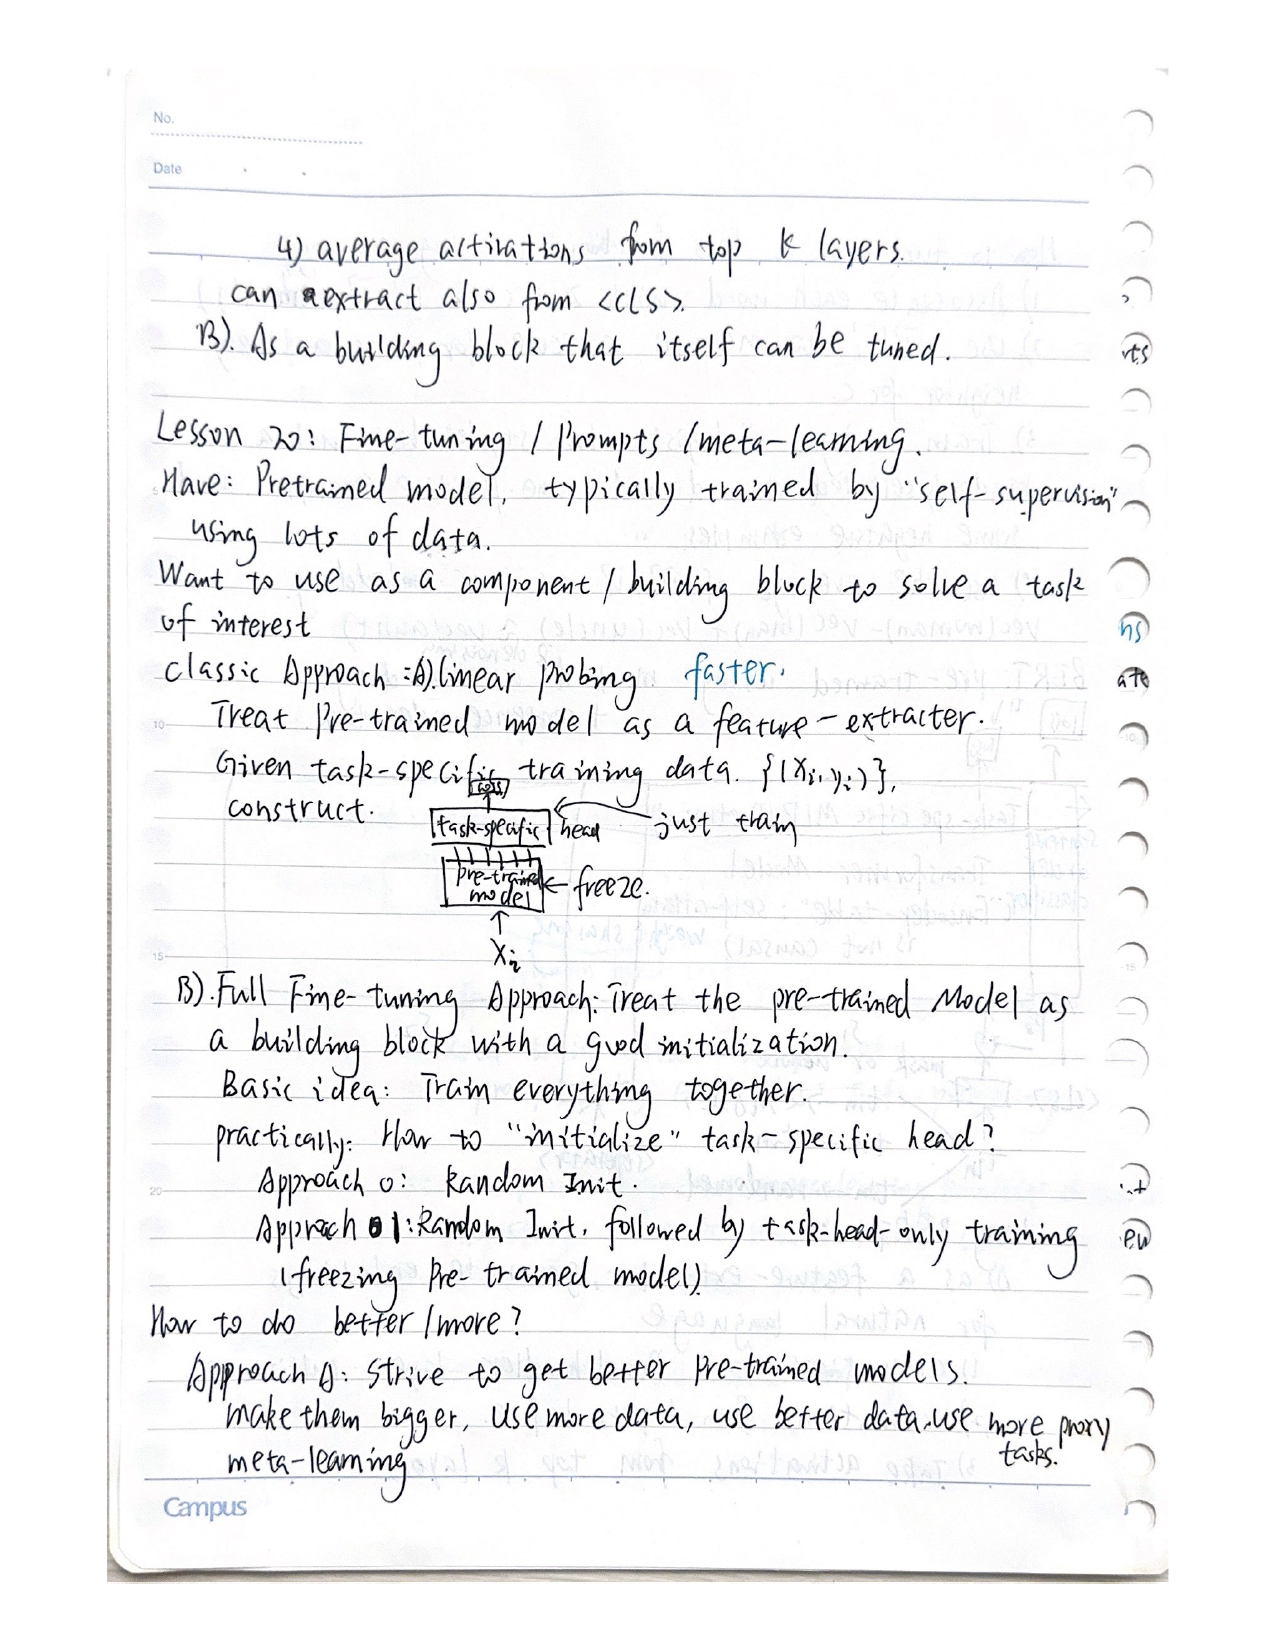 No.
Date
4) average activations from top k layers.
can extract also from <CLS>.
B). As a building block that itself can be tuned.
Lesson 20: Fine-tuning / Prompts / meta-learning.
Have: Pretrained model, typically trained by "self-supervision"
using lots of data.
Want to use as a component / building block to solve a task
of interest
classic Approach: A). linear probing faster.
Treat Pre-trained model as a feature-extracter.
Given task-specific training data. {(Xi, yi)},
construct.
loss
task-specific head just train
pre-trained
model freeze.
Xi
B). Full Fine-tuning Approach: Treat the pre-trained Model as
a building block with a good initialization.
Basic idea: Train everything together.
practically: How to "initialize" task-specific head?
Approach 0: Random Init.
Approach 1: Random Init, followed by task-head-only training
(freezing Pre-trained model).
How to do better / more?
Approach A: Strive to get better pre-trained models.
make them bigger, use more data, use better data, use more proxy
tasks.
meta-learning
Campus